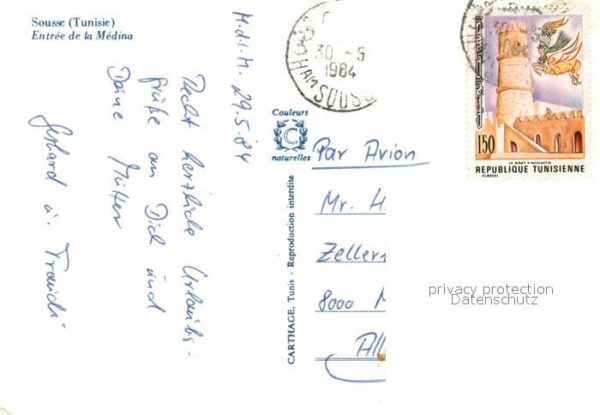 Sousse (Tunisie)
Entrée de la Médina
M.d.i.H. 29.5.84
Recht herzliche Urlaubs-
grüße an Dich und
Deine Mutter
Gerhard u. Traudi
Couleurs
naturelles
CARTHAGE, Tunis - Reproduction interdite
30 -5
1984
HAM SOUSSE
150
LE RIBAT • MONASTIR
REPUBLIQUE TUNISIENNE
Par Avion
Mr. H
Zellers
8000 M
All
privacy protection
Datenschutz